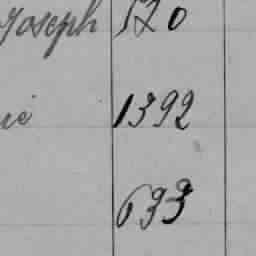 Joseph 520
ie 1392
633